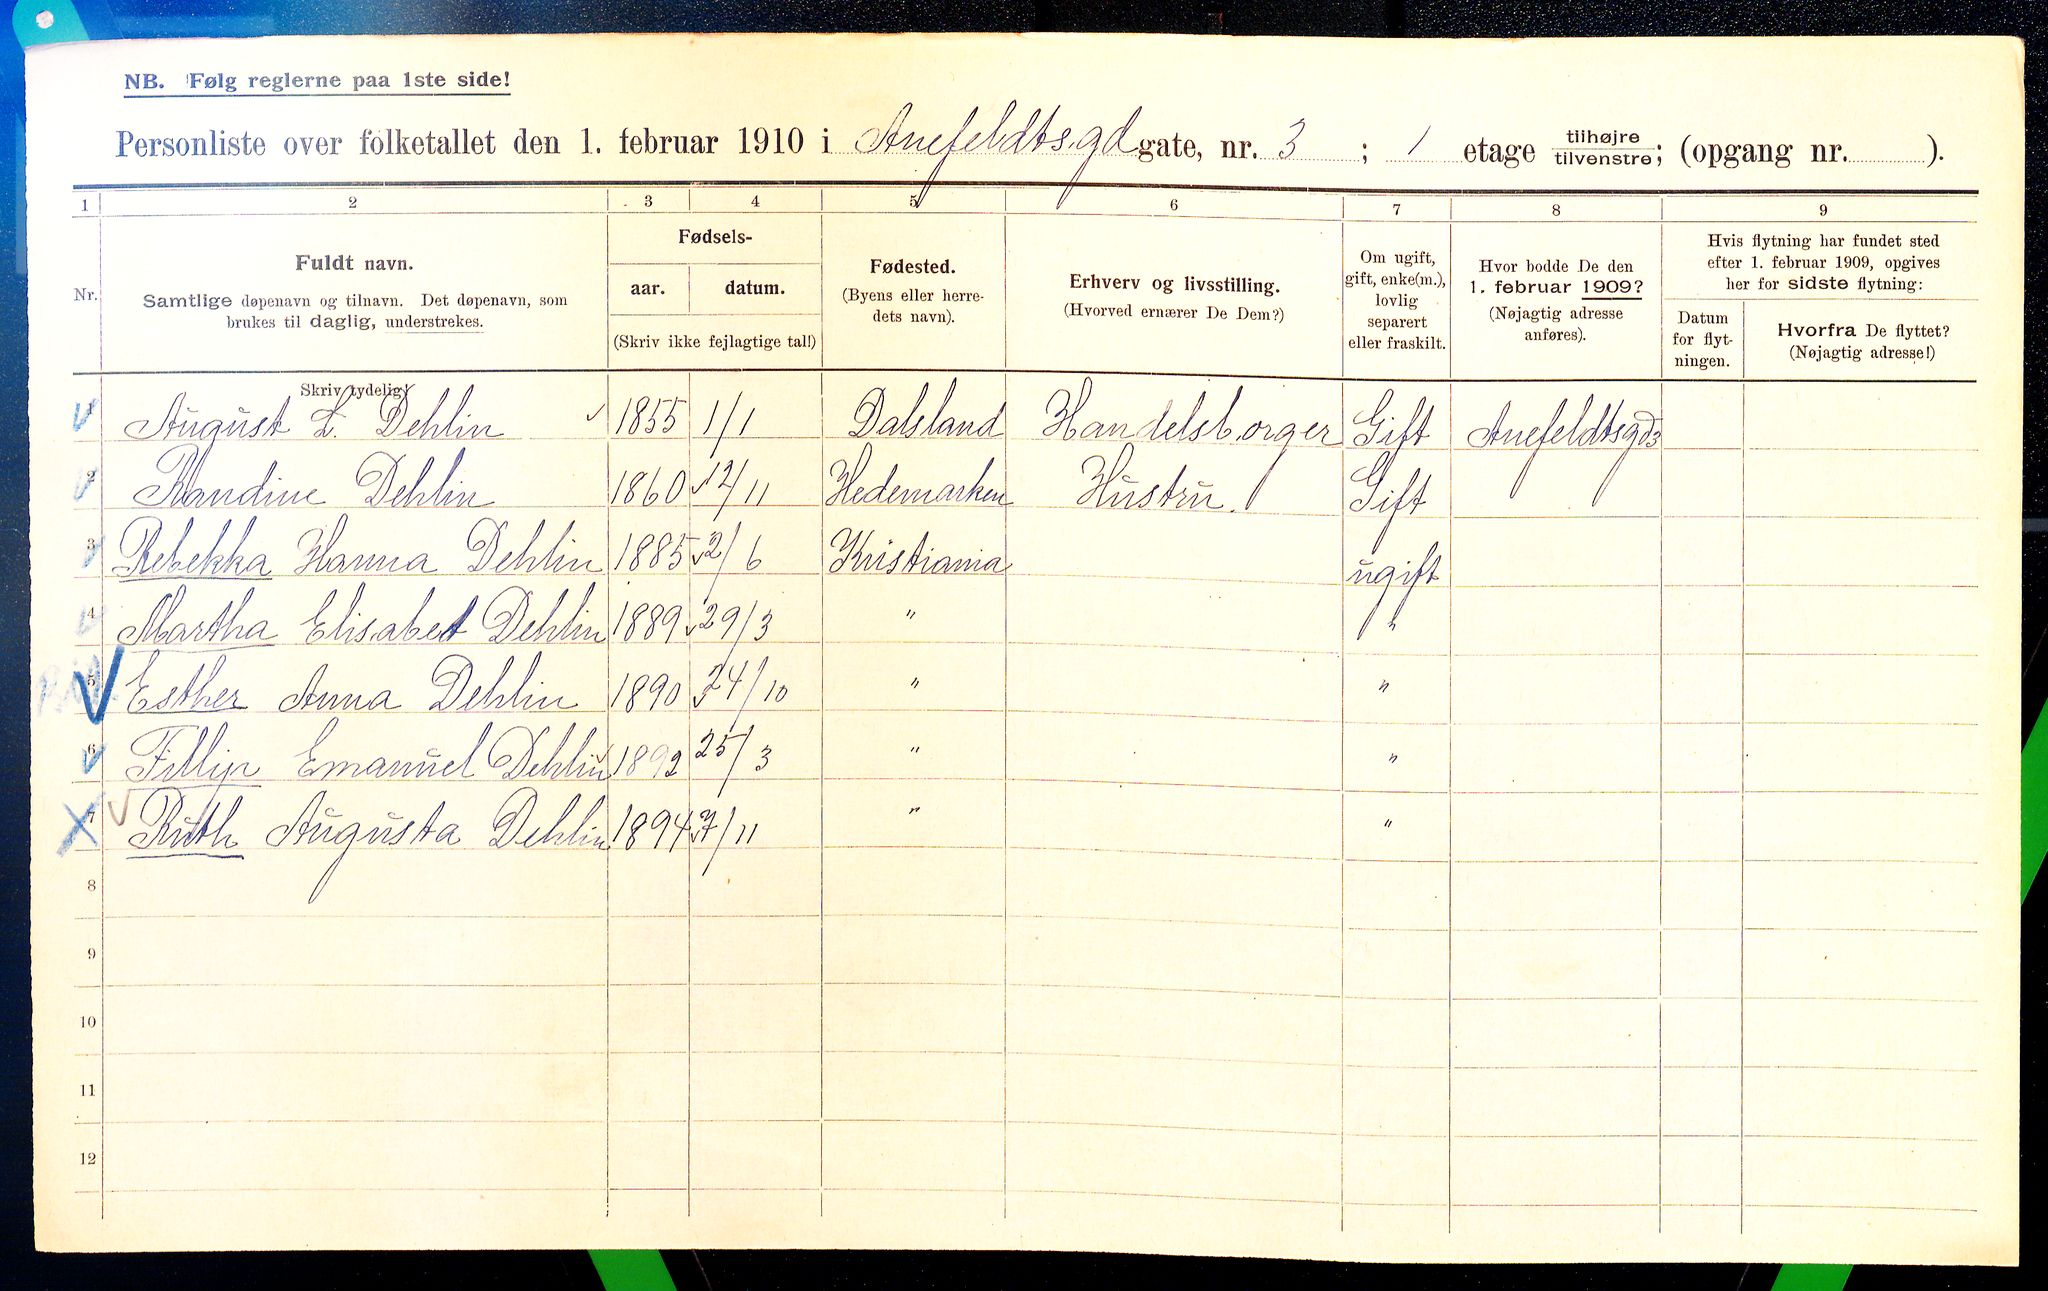 NB. Følg reglerne paa 1ste side!
Personliste over folketallet den 1. februar 1910 i Anefeldtsgd gate, nr. 3 ; 1 etage tilhøjre tilvenstre; (opgang nr. ).
1 2 3 4 5 6 7 8 9
Nr.
Fuldt navn.
Samtlige døpenavn og tilnavn. Det døpenavn, som
brukes til daglig, understrekes.
Skriv tydelig!
Fødsels-
aar. datum.
(Skriv ikke fejlagtige tal!)
Fødested.
(Byens eller herre-
dets navn).
Erhverv og livsstilling.
(Hvorved ernærer De Dem?)
Om ugift,
gift, enke(m.),
lovlig
separert
eller fraskilt.
Hvor bodde De den
1. februar 1909?
(Nøjagtig adresse
anføres).
Hvis flytning har fundet sted
efter 1. februar 1909, opgives
her for sidste flytning:
Datum
for flyt-
ningen.
Hvorfra De flyttet?
(Nøjagtig adresse!)
1 August L. Dehlin 1855 1/1 Dalsland Handelsborger Gift Anefeldtsgd 3
2 Randine Dehlin 1860 12/11 Hedemarken Hustru. Gift
3 Rebekka Hanna Dehlin 1885 2/6 Kristiania ugift
4 Martha Elisabet Dehlin 1889 29/3 " "
5 Esther Anna Dehlin 1890 24/10 " "
6 Fillip Emanuel Dehlin 1892 25/3 " "
7 Ruth Augusta Dehlin 1894 7/11 " "
8
9
10
11
12